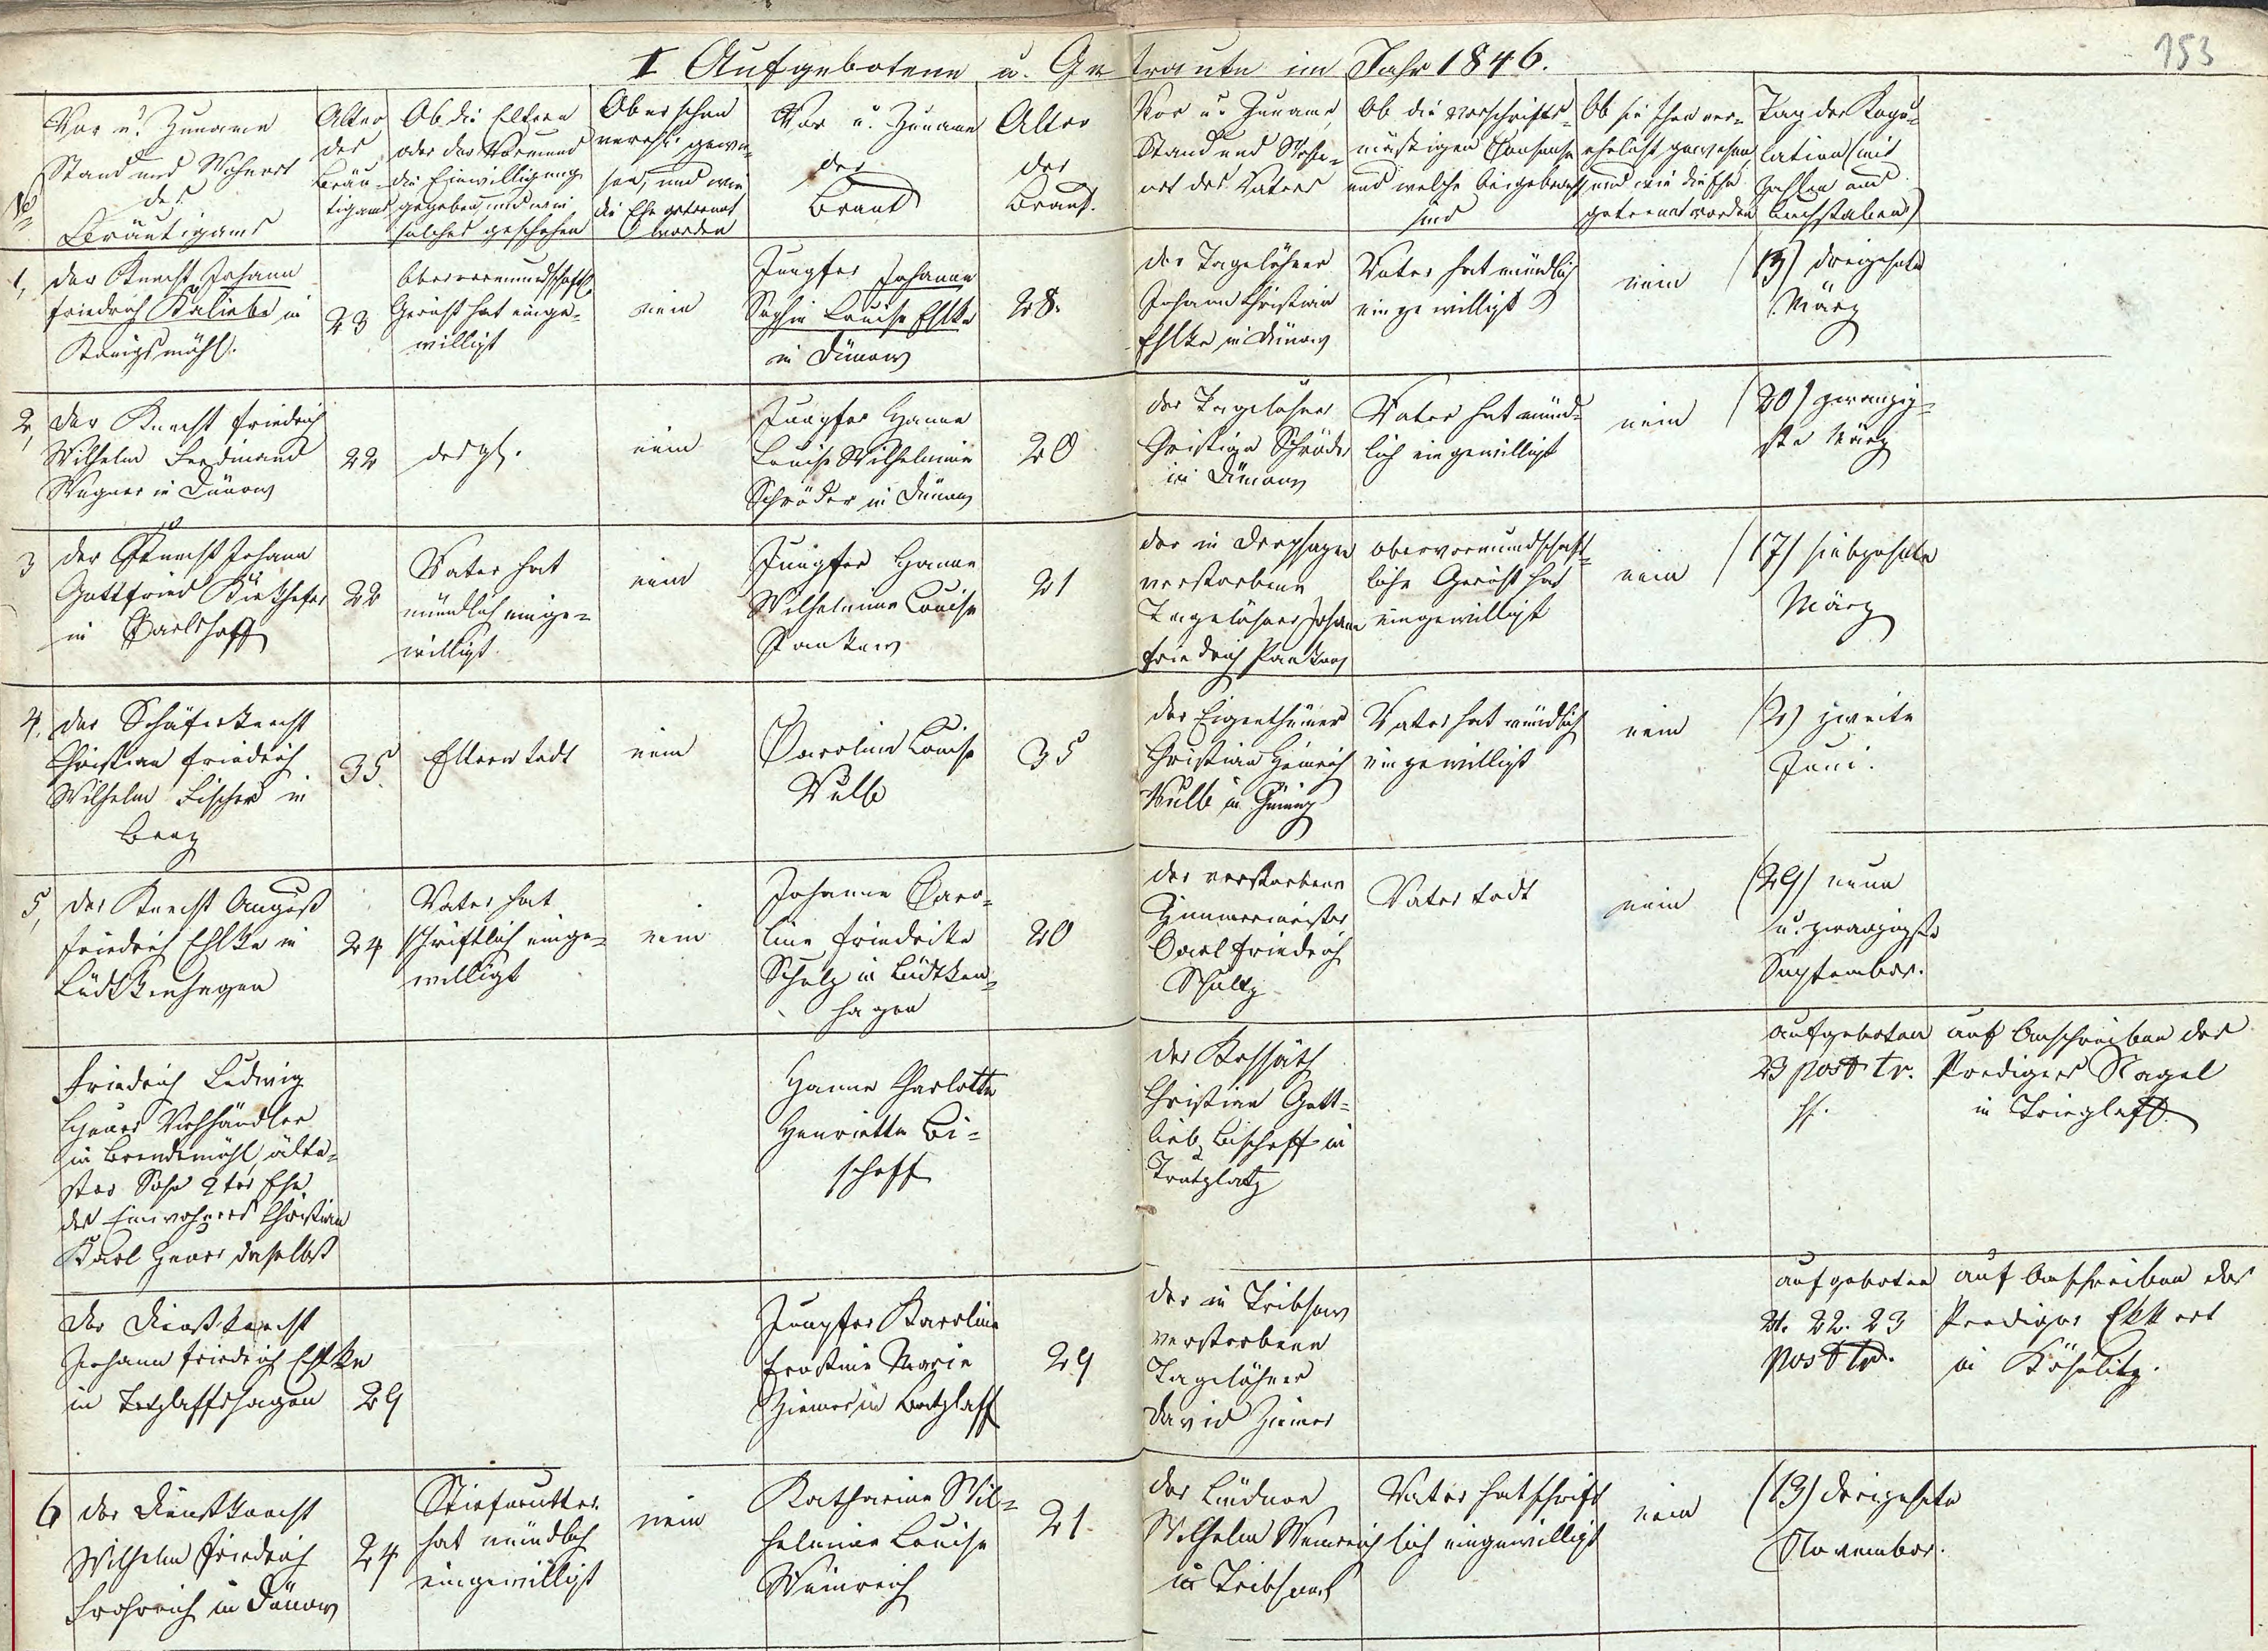 I Aufgebotene u. Getraute im Jahr 1846.
153
№
Vor u. Zuname
Stand und Wohnort
des
Bräutigams
Alter
des
Bräu-
tigams
Ob die Eltern
oder der Vormund
die Einwilligung
gegeben und wie
solches geschehen
Ob er schon
verehl. gewe-
sen, und wie
die Ehe getrennt
worden
Vor u. Zuname
der
Braut
Alter
der
Braut.
Vor u. Zuname,
Stand und Wohn-
ort des Vaters
Ob die vorschrifts-
mäßigen Consense
und welche beigebracht
sind
Ob sie schon ver-
ehelicht gewesen,
und wie die Ehe
getrennt worden
Tag der Kopu-
lation (mit
Zahlen und
Buchstaben)
1,
der Knecht Johann
Friedrich Kaliebe in
Königsmühl.
23
Obervormundschaftl.
Gericht hat einge-
willigt
nein
Jungfer Johanne
Sophie Louise Ehlke
in Dünow
28.
der Tagelöhner
Johann Christian
Ehlke in Dünow
Vater hat mündlich
eingewilligt
nein
(13) dreizehnte
März
2,
der Knecht Friedrich
Wilhelm Ferdinand
Wegner in Dünow
22
desgl.
nein
Jungfer Hanne
Louise Wilhelmine
Schröder in Dünow
20
der Tagelöhner
Christian Schröder
in Dünow
Vater hat münd-
lich eingewilligt
nein
(20) zwanzig-
ste März
3
der Knecht Johann
Gottfried
in Carlshoff
22
Vater hat
mündlich einge-
willigt
nein
Jungfer Hanne
Wilhelmine Louise
Pankow
21
der in
verstorbene
Tagelöhner Johann
Friedrich Pankow
Obervormundschaft-
liche Gericht hat
eingewilligt
nein
(17) siebzehnte
März
4.
der Schäferknecht
Christian Friedrich
Wilhelm Fischer in
Benz
35.
Eltern todt
nein
Caroline Louise
Wulff
35
der Eigenthümer
Christian Heinrich
Wulff in
Vater hat mündlich
eingewilligt
nein
(2) zweite
Juni.
5,
der Knecht August
Friedrich Ehlke in
Lüdtkenhagen
24
Vater hat
schriftlich einge-
willigt
nein
Johanne Caro-
line Friedrike
Schulz in Lüdtken-
hagen
20
der verstorbene
Zimmermeister
Carl Friedrich
Schultz
Vater todt
nein
(29) neun
u. zwanzigste
September.
Friedrich Ludwig
Heuer Viehhändler
in Brendemühl, älte-
ster Sohn 2ter Ehe
des Einwohners Christian
Karl Heuer daselbst
Hanne Charlotte
Henriette Bi-
schoff
der Kossäth
Christian Gott-
lieb Bischoff in
Trutzlatz
aufgeboten
23 post tr.
ff.
auf Anschreiben des
Prediger Nagel
in Trieglaff
der Dienstknecht
Johann Friedrich Ehlke
in Tetzlaffshagen
29
Jungfer Karoline
Ernstine Marie
Ziemer in Batzlaff
29
der in Tribsow
verstorbene
Tagelöhner
David Ziemer
aufgeboten
21. 22. 23
post tr.
auf Anschreiben des
Prediger Ekkert
in Köselitz.
6
der Dienstknecht
Wilhelm Friedrich
Frohreich in Dünow
24
Stiefmutter
hat mündlich
eingewilligt
nein
Katharine Wil-
helmine Louise
Weinreich
21.
der Büdner
Wilhelm Weinreich
in Tribsow
Vater hat schrift
lich eingewilligt
nein
(13) dreizehnte
November.